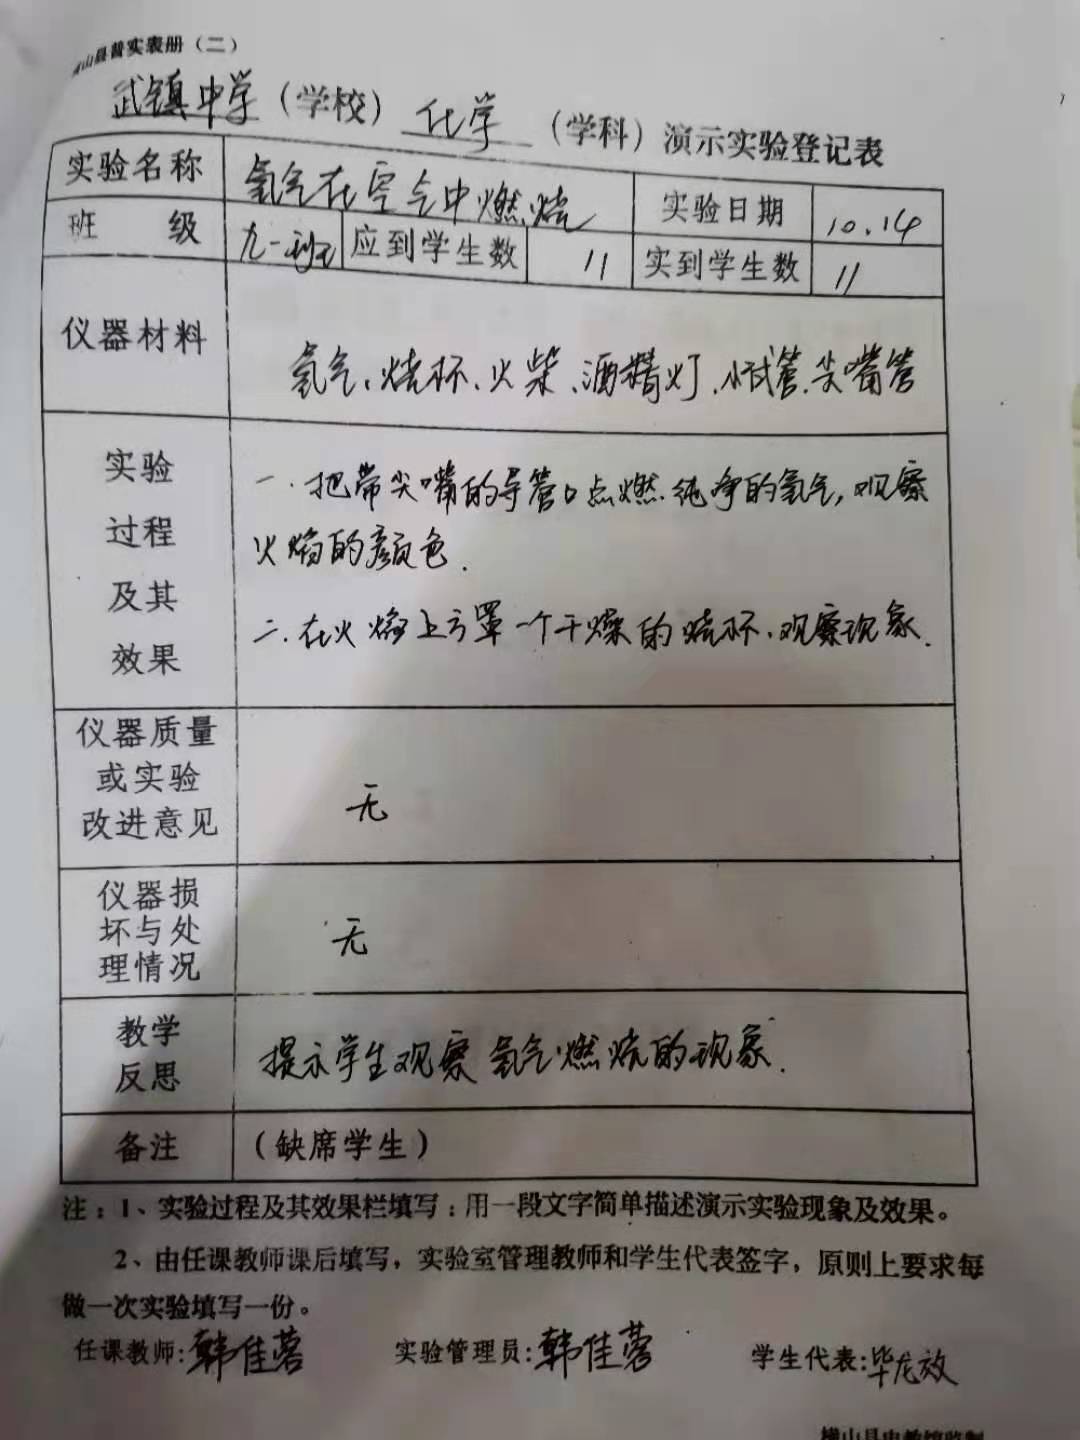 山县普实表册（二）
武镇中学（学校）化学（学科）演示实验登记表
实验名称 氢气在空气中燃烧 实验日期 10.14
班 级 九一班 应到学生数 11 实到学生数 11
仪器材料 氢气、烧杯、火柴、酒精灯、小试管、尖嘴管
实验
过程
及其
效果
一.把带尖嘴的导管口点燃纯净的氢气,观察
火焰的颜色.
二.在火焰上方罩一个干燥的烧杯.观察现象.
仪器质量
或实验
改进意见
无
仪器损
坏与处
理情况
无
教学
反思
提示学生观察氢气燃烧的现象.
备注 （缺席学生）
注：1、实验过程及其效果栏填写：用一段文字简单描述演示实验现象及效果。
2、由任课教师课后填写，实验室管理教师和学生代表签字，原则上要求每
做一次实验填写一份。
任课教师:韩佳蓉 实验管理员:韩佳蓉 学生代表:毕龙效
横山县电教馆监制